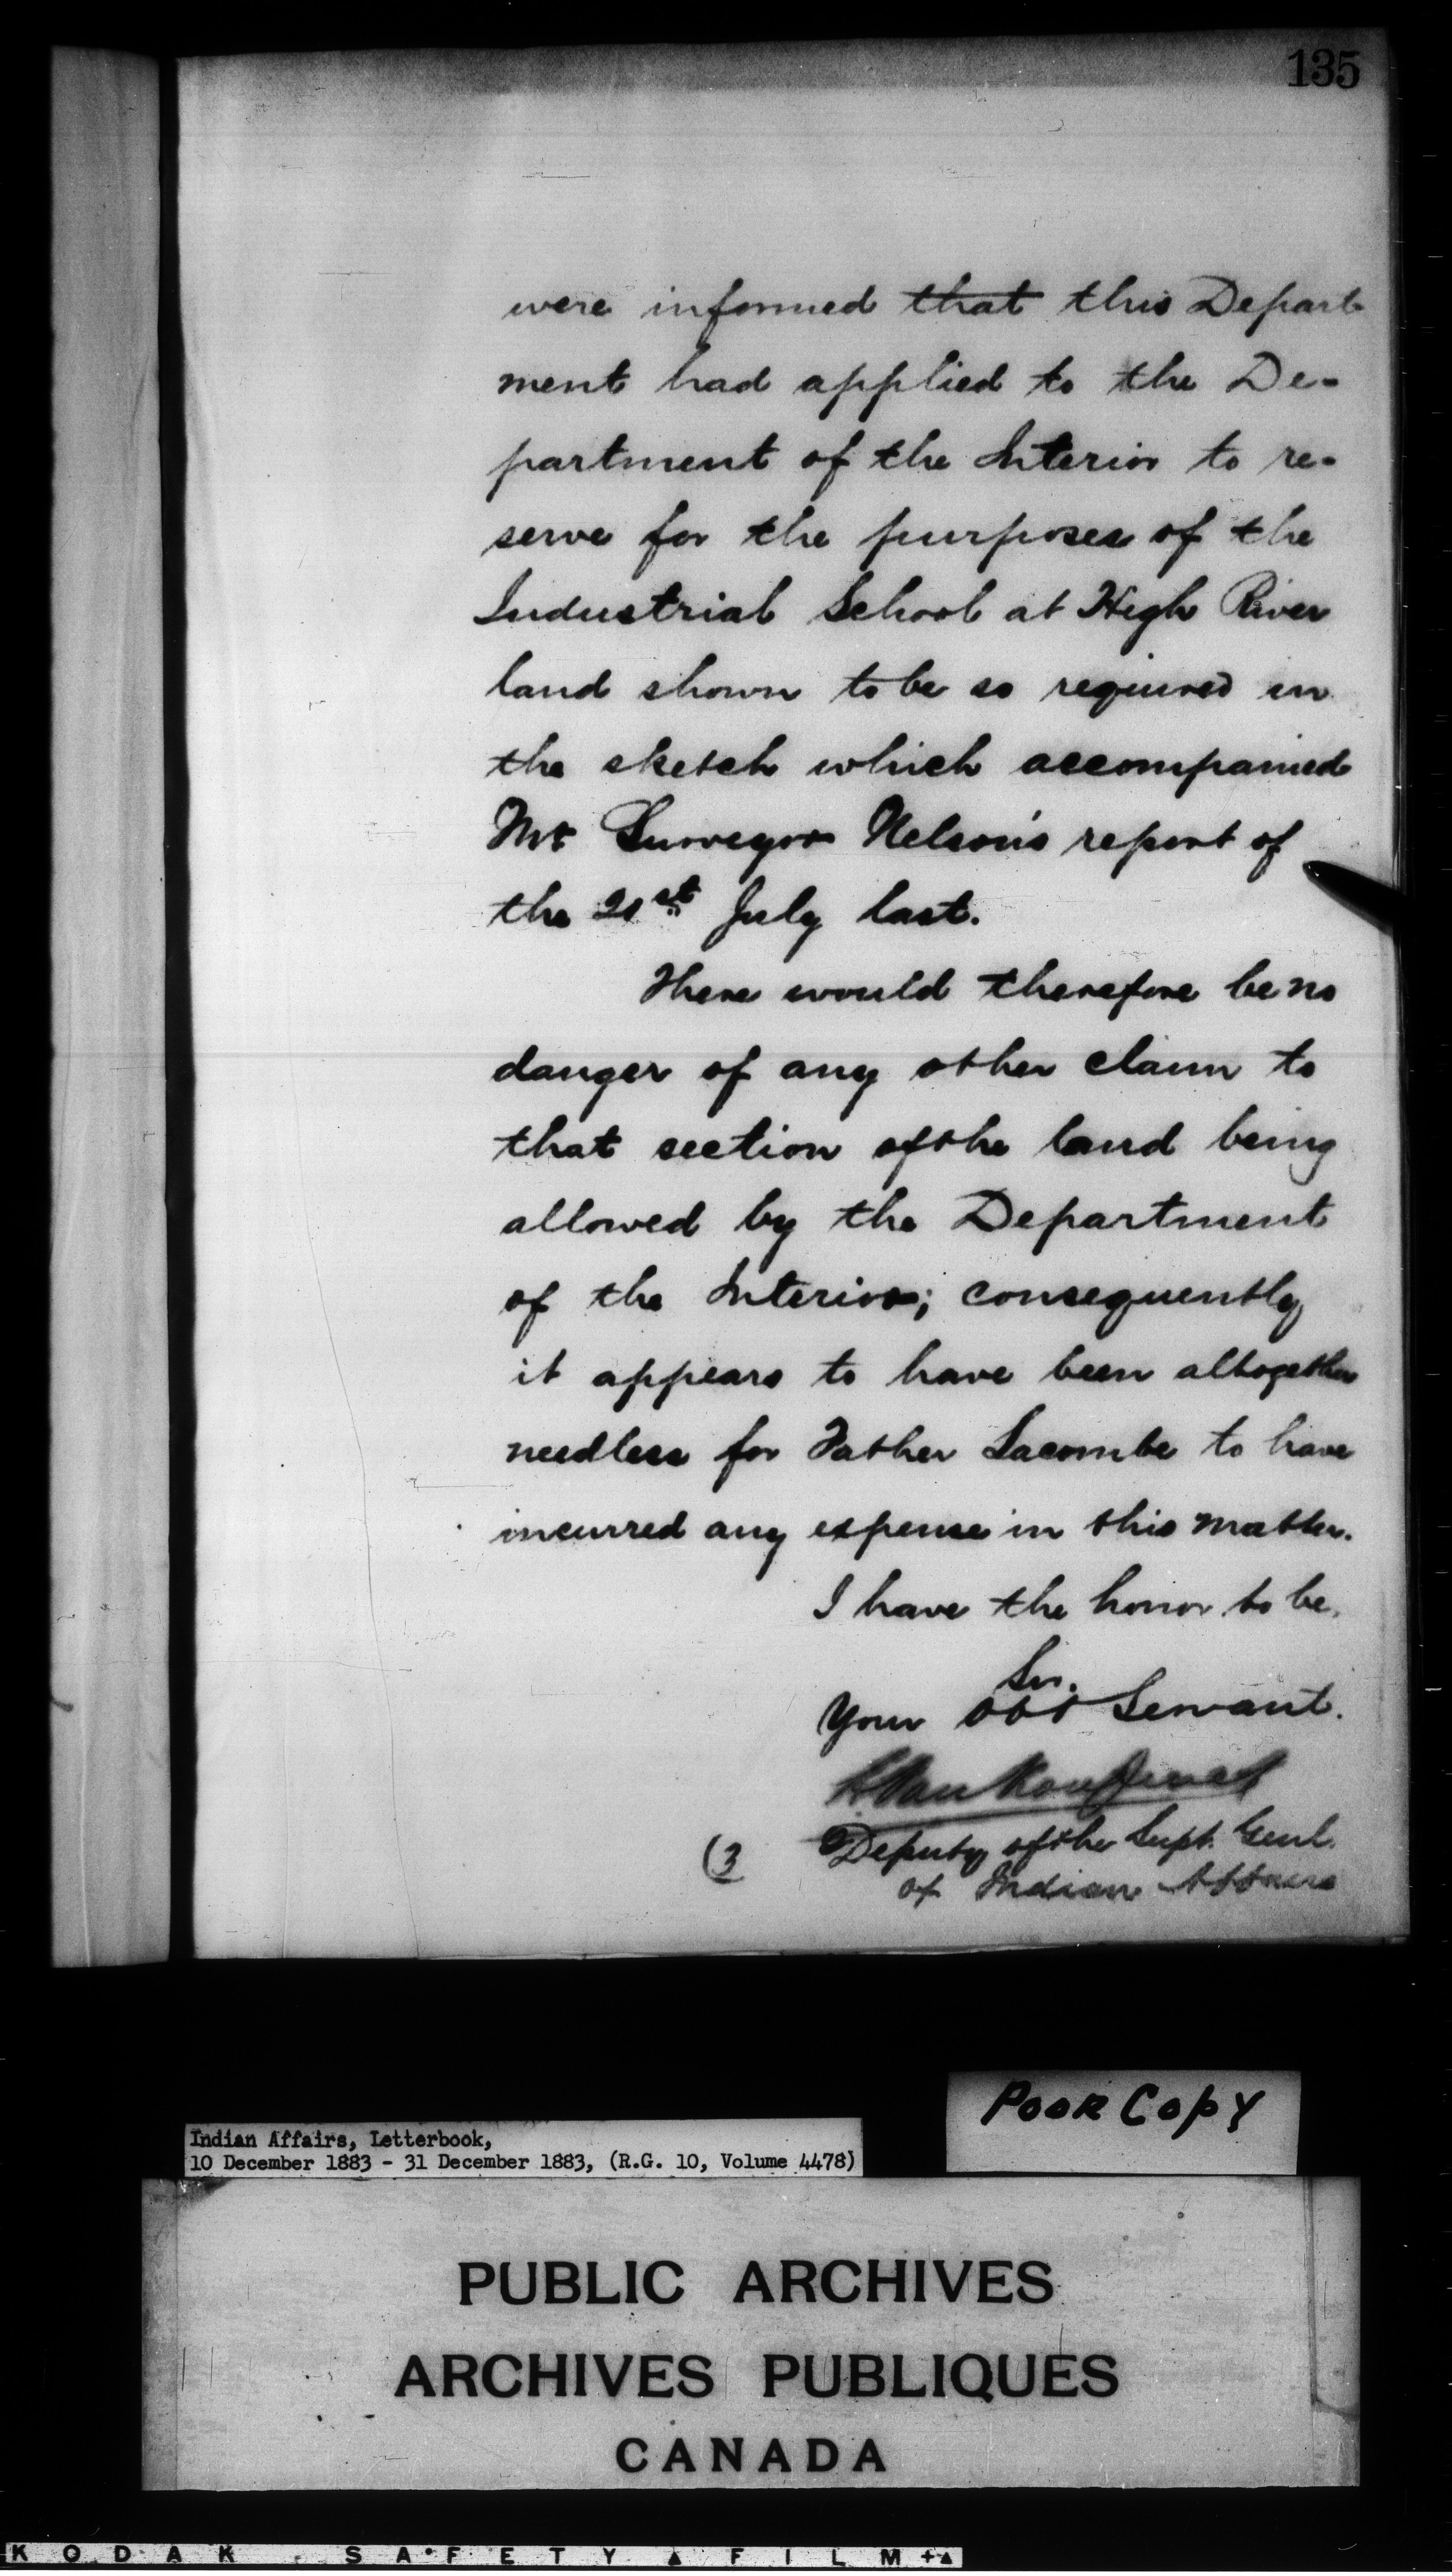 135
were informed that this Depart
ment had applied to the De-
partment of the Interior to re-
serve for the purposes of the
Industrial School at High River
land shown to be so required in
the sketch which accompanied
Mr Surveyor Nelson's report of
the 21st July last.
There would therefore be no
danger of any other claim to
that section of the land being
allowed by the Department
of the Interior; consequently
it appears to have been altogether
needless for Father Lacombe to have
incurred any expense in this matter.
I have the honor to be,
Sir.
Your Obt Servant.
L Vankoughnet
(3
Deputy of the Supt. Genl.
of Indian Affairs
POOR COPY
Indian Affairs, Letterbook,
10 December 1883 - 31 December 1883, (R.G. 10, Volume 4478)
PUBLIC ARCHIVES
ARCHIVES PUBLIQUES
CANADA
KODAK SAFETY ▲ FILM +▲